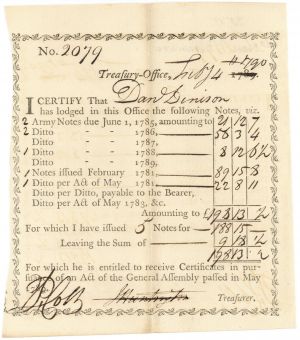 No. 2079
Treasury-Office, Feb 4 1790
I CERTIFY That Danl Denison
has lodged in this Office the following Notes, viz.
2 Army Notes due June 1, 1785, amounting to 21 12 7
2 Ditto - - 1786, 58 3 4
Ditto - - 1787,
Ditto - - 1788, 8 12 6½
Ditto - - 1789,
1 Notes issued February 1781, 89 15 8
1 Ditto per Act of May 1781, 22 8 11
Ditto per Ditto, payable to the Bearer,
Ditto per Act of May 1783, &c.
Amounting to £198 13 ½
For which I have issued 5 Notes for 188 15
Leaving the Sum of 9 18 ½
198 13 ½
For which he is entitled to receive Certificates in pur-
of an Act of the General Assembly passed in May
Treasurer.